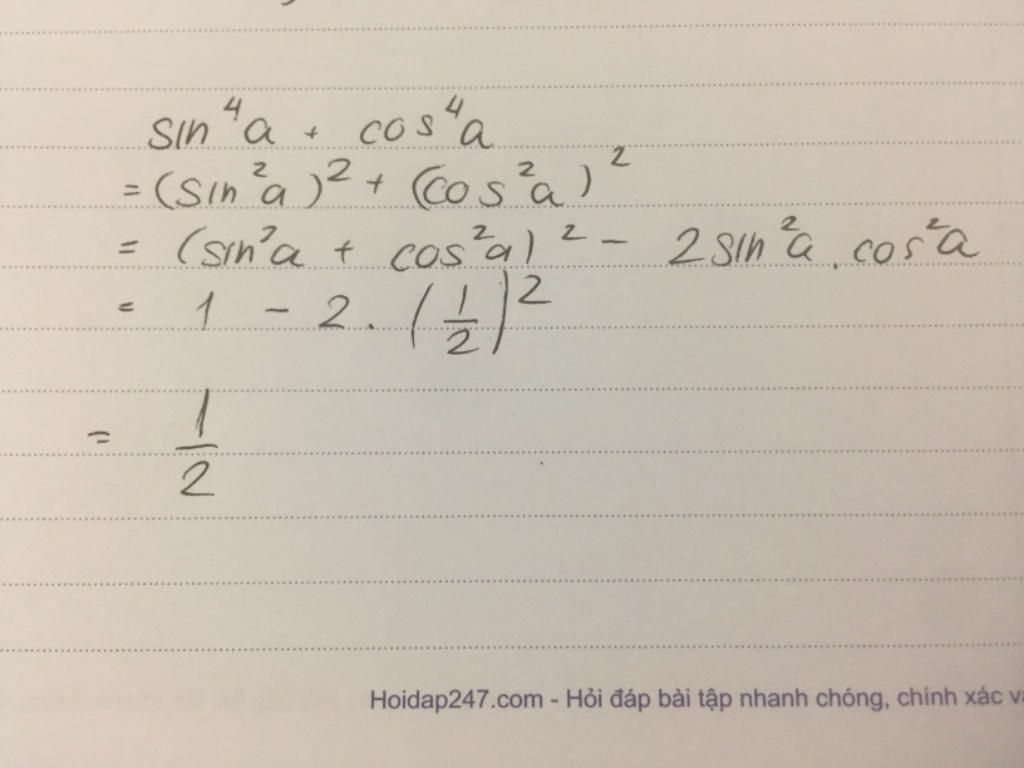 sin⁴a + cos⁴a
= (sin²a)² + (cos²a)²
= (sin²a + cos²a)² - 2sin²a . cos²a
= 1 - 2 . (1/2)²
= 1/2
Hoidap247.com - Hỏi đáp bài tập nhanh chóng, chính xác